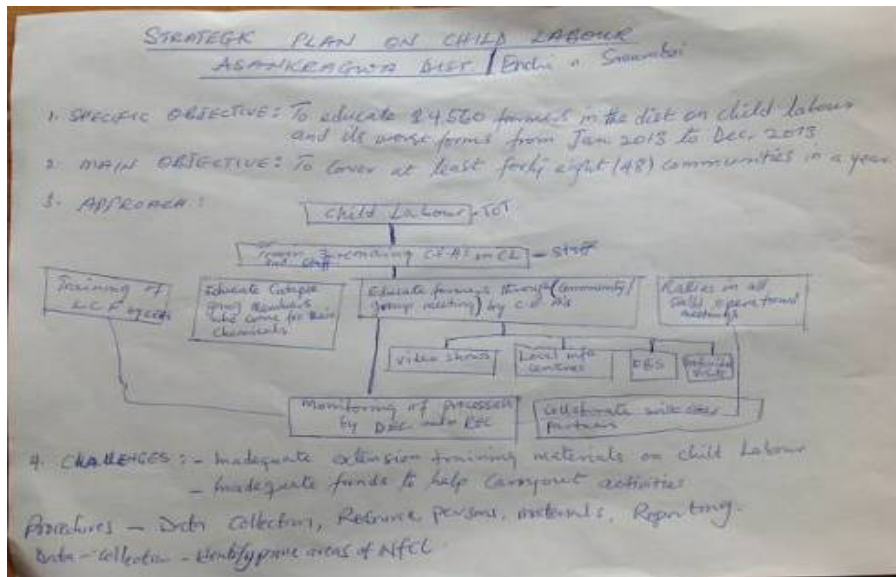 STRATEGIC PLAN ON CHILD LABOUR
ASANKRAGWA DIST. / Enchi n
1. SPECIFIC OBJECTIVE: To educate 4,560 farmers in the dist on child labour
and its worst forms from Jan 2013 to Dec. 2013
2. MAIN OBJECTIVE: To cover at least forty eight (48) communities in a year
3. APPROACH:
Child Labour - ToT
Train remaining CEAs on CL - staff
Training of LCF
Educate
group members
who come for their
chemicals
Educate farmers through (community/
group meeting) by CEAs
Rallies in all
meetings
video shows
Local info
centres
FBS
visits
Monitoring of processes
by DEC and REC
Collaborate with other
partners
4. CHALLENGES: - Inadequate extension training materials on child Labour
- Inadequate funds to help carryout activities
Procedures - Data collection, Resource persons, materials, Reporting.
Data - collection - Identify areas of